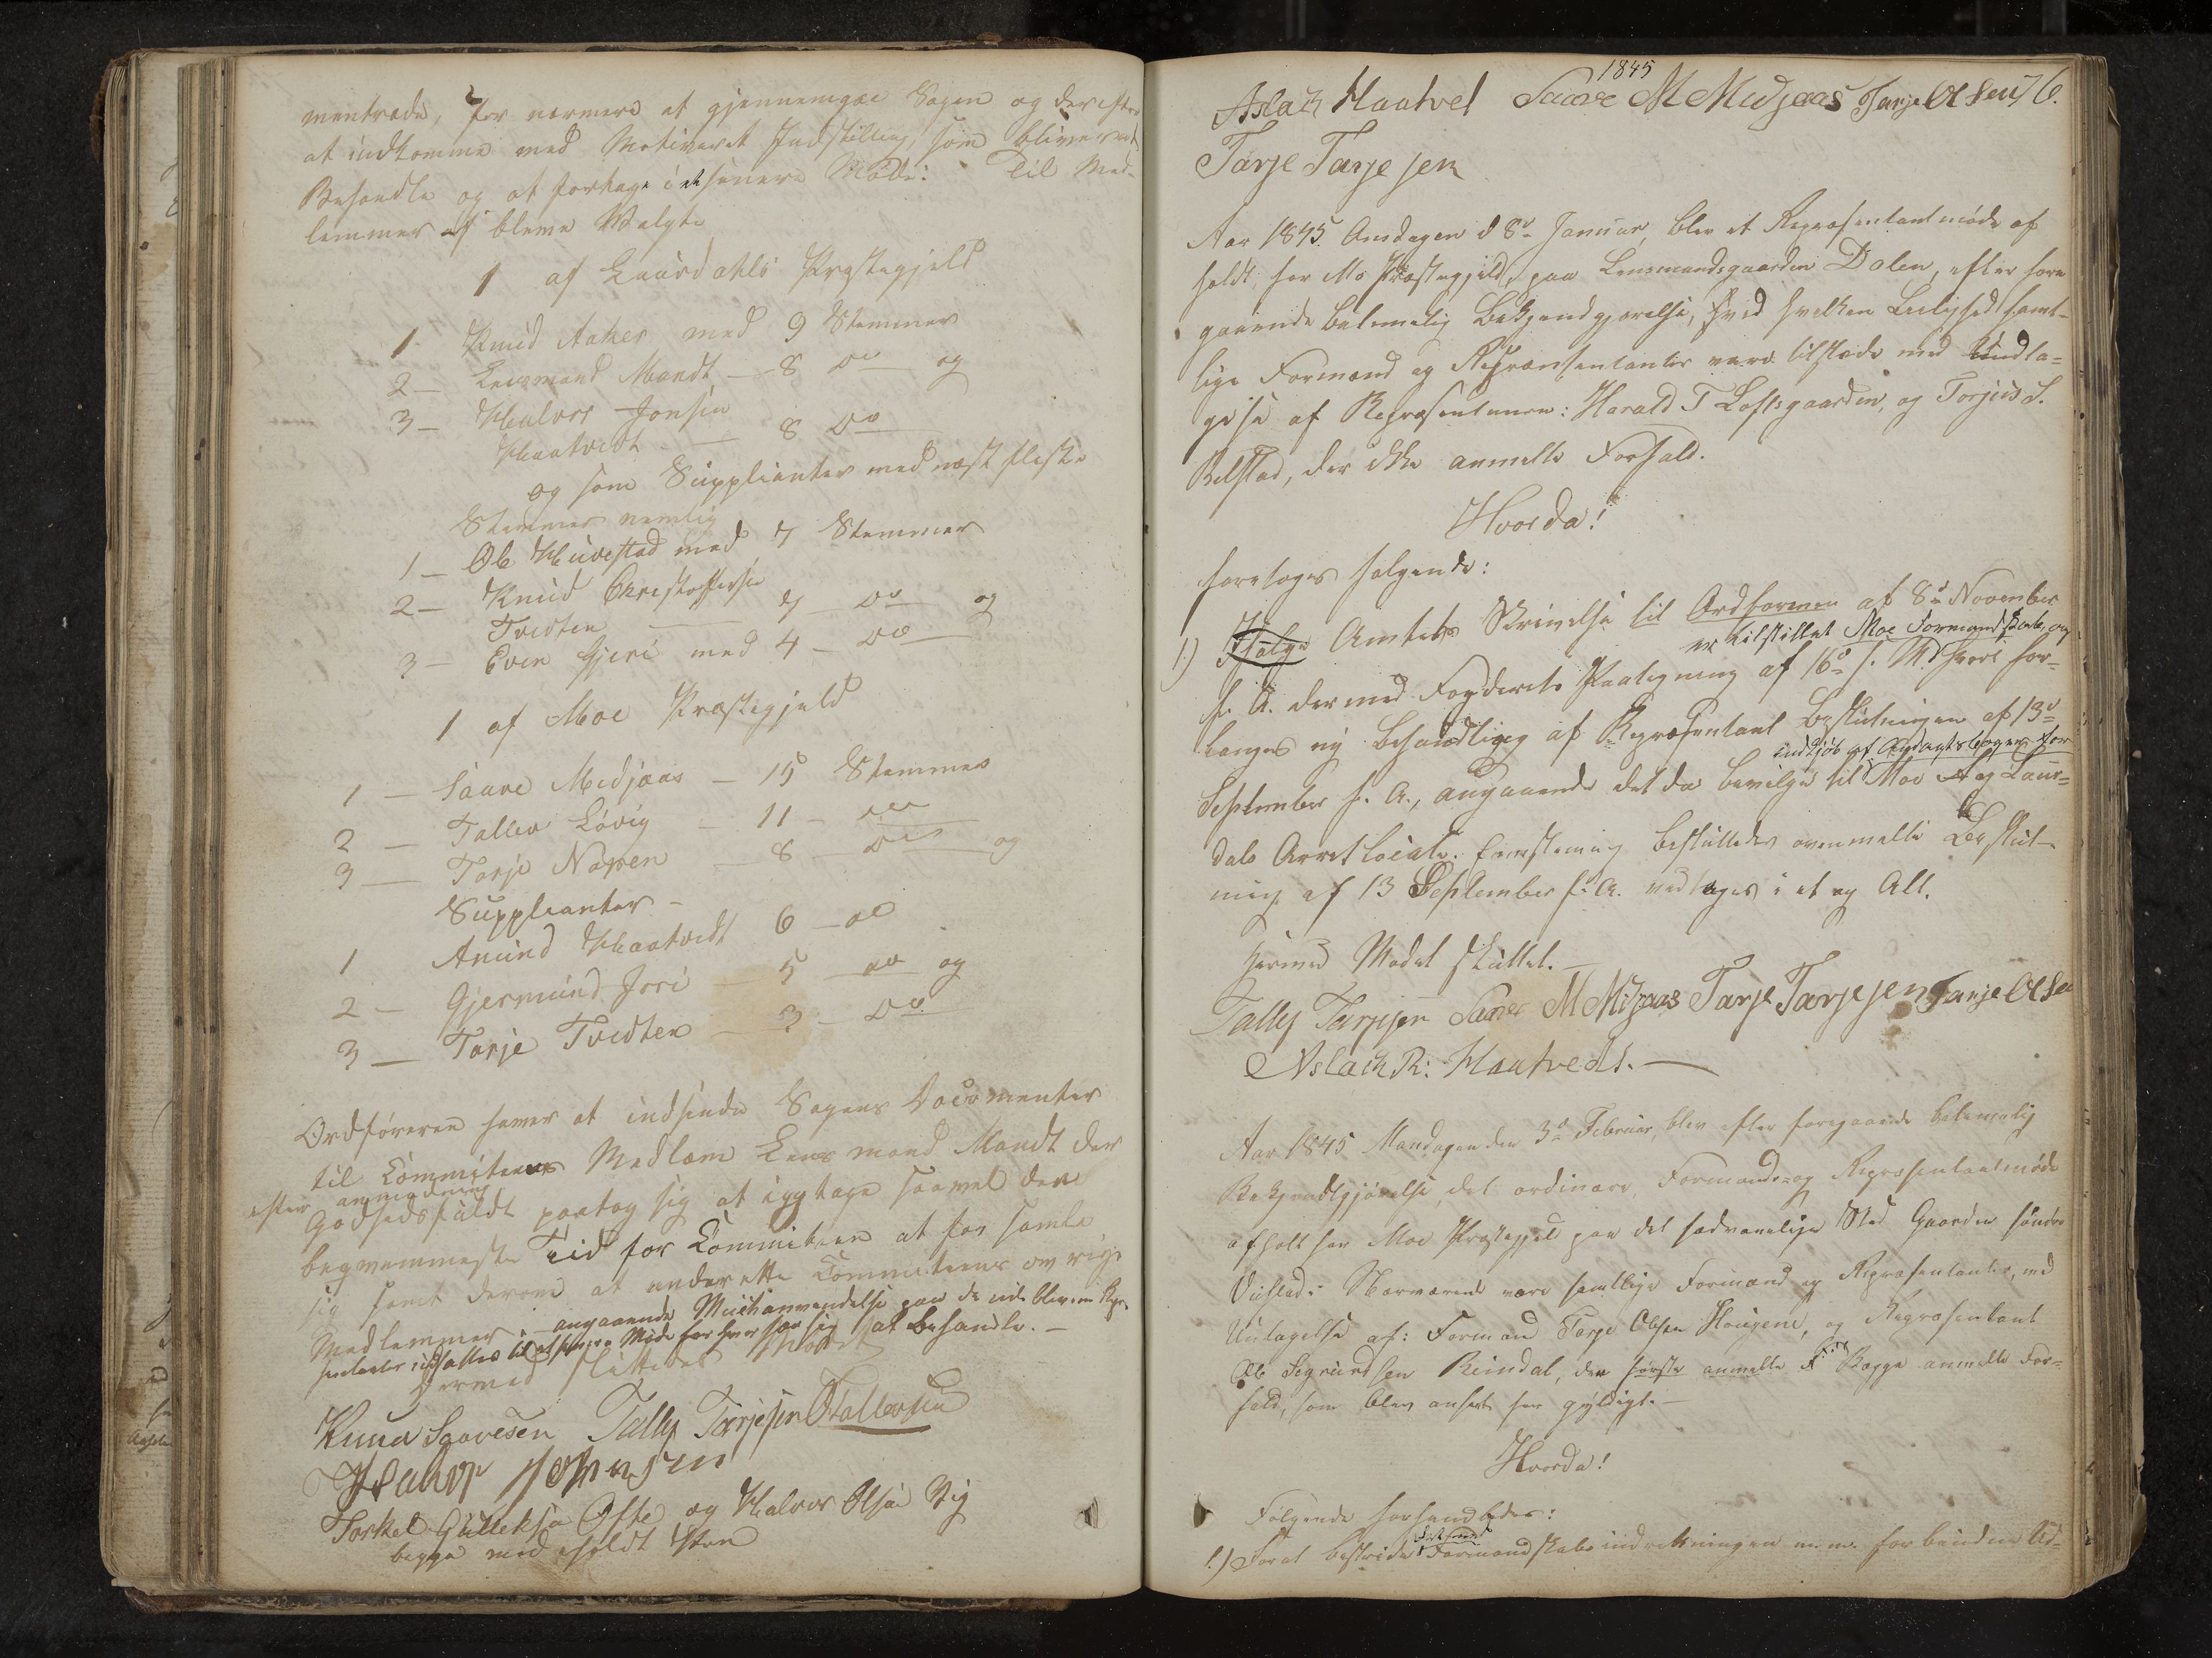 mentræde, for nærmere at gjennemgaae Sagen og derefter
at indkomme med Motiveret Indstilling, som bliver at
Behandle og at foretage i et senere Møde: Til Med-
lemmer af bleve Valgte
1 af Laurdahls Præstegjeld
1 Knud Aaker med 9 Stemmer
2 — Lensmand Mandt — 8 do og
3 — Halvor Jonsen
Haatvedt — 8 do
og som Supplianter med næst fleste
Stemmer nemlig
1 — Ole Huvestad med 7 Stemmer
2 — Knud Christophersen
Tvedten — 7 do og
3 — Even Gjeri med 4 — do
1 af Moe Præstegjeld
1 — Saave Midjaas — 15 Stemmer
2 — Tallev Løvig — 11 — do
3 — Torje Næsen — 8 do og
Supplianter —
1 Amund Haatvedt 6 — do
2 — Gjermund Jori — 5 do og
3 — Torje Tvedten — 3 — do
Ordføreren haver at indsende Sagens Documenter
til Committeens Medlem Lensmand Mandt der
efter anmodning
Godhedsfuldt paatog sig at iagttage saavel den
beqvemmeste Tiid for Committeen at for samle
sig samt derom at underrette Committeens øvrige
Medlemmer. — angaaende anvendelse paa de udeblevne Repr.
sentanter udsattes til et senere Møde for hver for sig at behandle. —
Hermed sluttedes Mødet
Knud Saavesen Tallef Tarjesen O Tallevsen
Halvor Johnsen
Torkel Gulleksen Ofte og Halvor Olsen Vig
begge med iholdt Pen
1845
Aslack Haatvet Saave M Midjaas Tarje Olsen 76.
Tarje Tarjesen
Aar 1845 Onsdagen d 8de Januar, blev et Repræsentantmøde af
holdt for Mo Præstegjeld, paa Lensmandsgaarden Dalen, efter fore
gaaende betimelig Bekjendgjørelse, hvid hvilken Leilighed samt-
lige Formænd og Repræsentanter vare tilstede med Undta-
gelse af Repræsentanen: Harald T Loftsgaarden, og Torjus S.
Bilstad, der ikke anmelte Forfald.
Hvorda!
foretoges følgende:
1.) Ifølge Amtets Skrivelse til Ordføreren af 8de November
er tilstillet Moe Formandskab, og
f. A. der med Fogderiets Paategning af 16de s. M. hvori for-
langes ny Behandling af Repræsentant Beslutningen af 13de
indkjøb af
September f. A., angaaende det da bevilgede til Moe og Laur-
dals Arrestlocale. Eenstemmig besluttedes ovenmelte Beslut-
ning af 13 September f. A. vedtages i et og Alt.
Hermed Mødet sluttet. —
Tallef Tarjesen Saave M Midjaas Tarje Tarjesen Tarje Olsen
Aslack R: Haatvedt. —
Aar 1845 Mandagen den 3de Februar, blev efter foregaaende betimelig
Bekjendtgjørelse, det ordinære, Formands- og Repræsentantmøde
afholt for Moe Præstegjeld paa det sædvanelige Sted Gaarden søndre
Vistad. Nærværende vare samtlige Formænd og Repræsentanter, med
Untagelse af: Formand Tarje Olsen Haugene, og Repræsentant
Ole Sigurdsen Rundal, den første anmelte Begge anmelte For-
fald, som blev anseet for gyldigt. —
Hvorda!
Følgende forhandledes:
1.) For at bestride Formandskabs indretningen m. m. forbundne Ud-